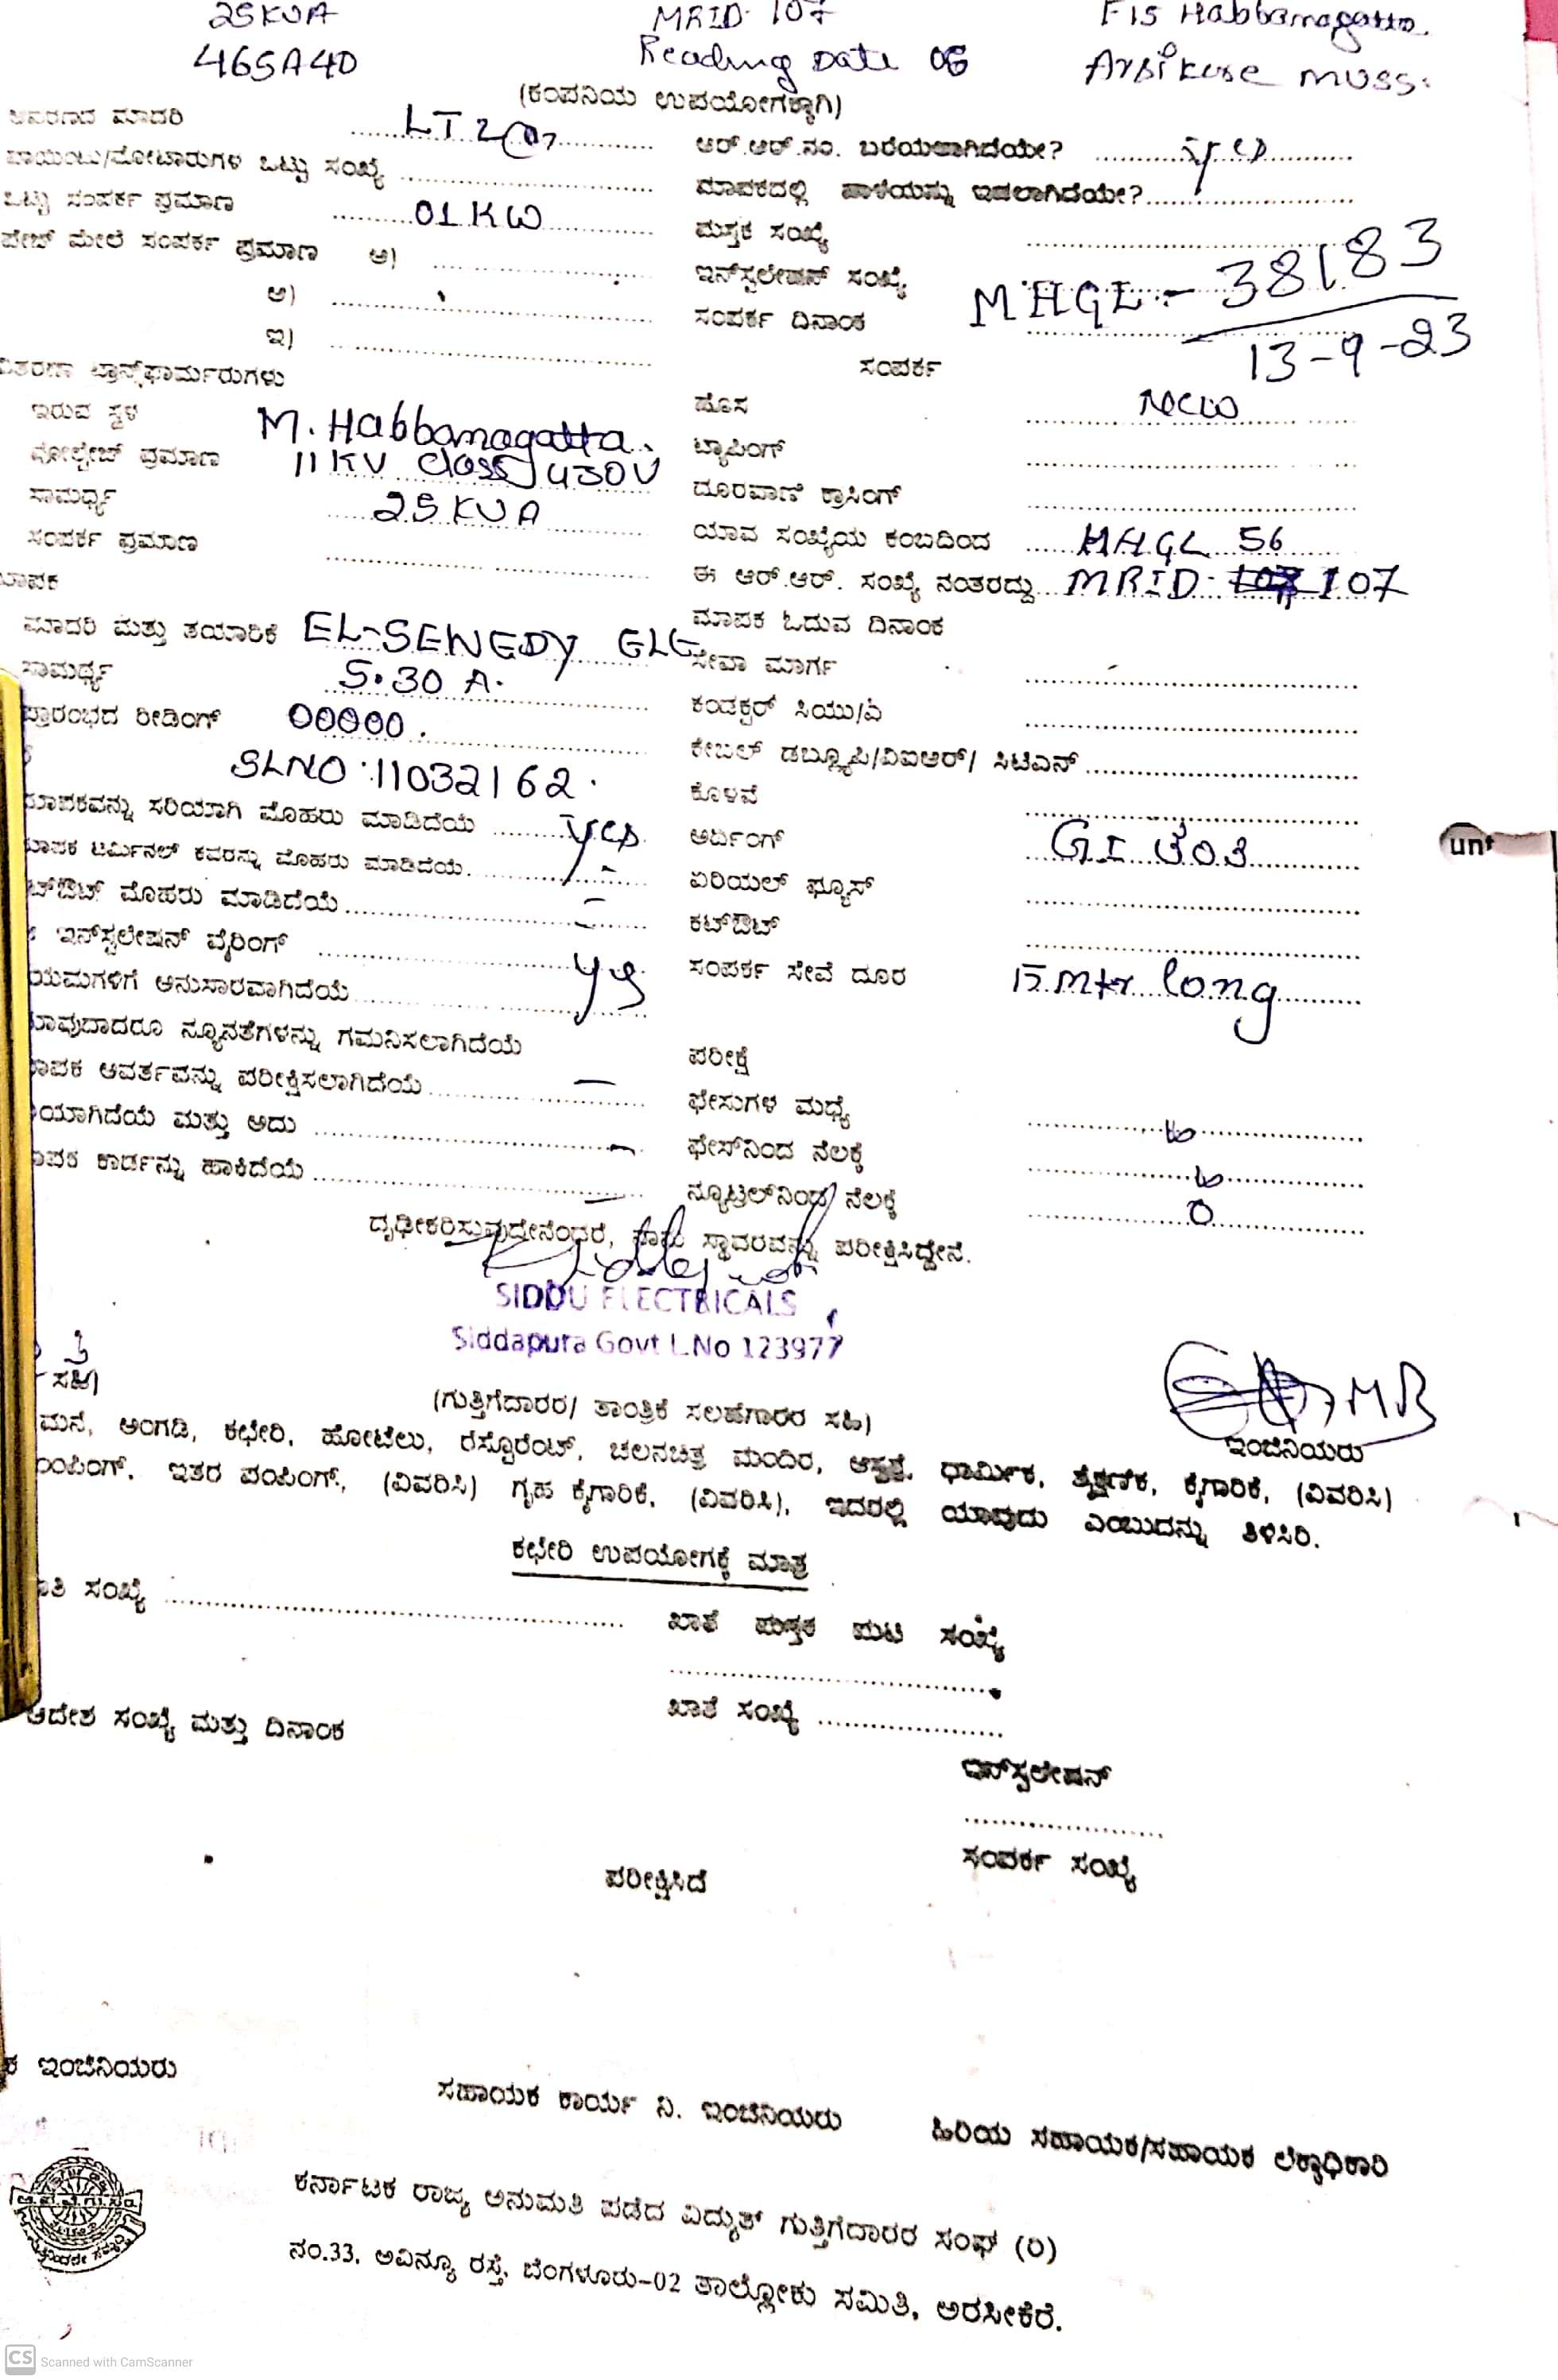 25KVA MRID 107 F15 Habbanagatta.
465A40 Reading Date 06 Arsikere MUSS.
(ಕಂಪನಿಯ ಉಪಯೋಗಕ್ಕಾಗಿ)
ಮಾದರಿ LT2 ಆರ್.ಆರ್.ನಂ. ಬರೆಯಲಾಗಿದೆಯೇ? yes
ಒಟ್ಟು ಸಂಖ್ಯೆ ಮಾಪಕದಲ್ಲಿ ಹಾಳೆಯನ್ನು ಇಡಲಾಗಿದೆಯೇ?
ಒಟ್ಟು ಸಂಪರ್ಕ ಪ್ರಮಾಣ 01 KW ಪುಸ್ತಕ ಸಂಖ್ಯೆ
ಮೇಲೆ ಸಂಪರ್ಕ ಪ್ರಮಾಣ ಅ) ಇನ್‌ಸ್ಟಲೇಷನ್ ಸಂಖ್ಯೆ MHGL - 38183
ಆ) ಸಂಪರ್ಕ ದಿನಾಂಕ 13-9-23
ಇ) ಸಂಪರ್ಕ
ಟ್ರಾನ್ಸ್‌ಫಾರ್ಮರುಗಳು
ಇರುವ ಸ್ಥಳ M. Habbanagatta. ಹೊಸ new
ವೋಲ್ಟೇಜ್ ಪ್ರಮಾಣ 11KV class 430V ಟ್ಯಾಪಿಂಗ್
ಸಾಮರ್ಥ್ಯ 25KVA ದೂರವಾಣಿ ಕ್ರಾಸಿಂಗ್
ಸಂಪರ್ಕ ಪ್ರಮಾಣ ಯಾವ ಸಂಖ್ಯೆಯ ಕಂಬದಿಂದ MHGL 56
ಈ ಆರ್.ಆರ್. ಸಂಖ್ಯೆ ನಂತರದ್ದು MRID 107
ಮಾದರಿ ಮತ್ತು ತಯಾರಿಕೆ EL-SEWEDY ಮಾಪಕ ಓದುವ ದಿನಾಂಕ
ಸಾಮರ್ಥ್ಯ 5.30 A. ಸೇವಾ ಮಾರ್ಗ
ಪ್ರಾರಂಭದ ರೀಡಿಂಗ್ 00000. ಕಂಡಕ್ಟರ್ ಸಿಯು/ಏ
SLNO 11032162. ಕೇಬಲ್ ಡಬ್ಲ್ಯೂಪಿ/ವಿಐಆರ್/ ಸಿಟಿಎಸ್
ಕೊಳವೆ
ಮಾಪಕವನ್ನು ಸರಿಯಾಗಿ ಮೊಹರು ಮಾಡಿದೆಯೆ yes ಅರ್ದಿಂಗ್ GI
ಮಾಪಕ ಟರ್ಮಿನಲ್ ಕವರನ್ನು ಮೊಹರು ಮಾಡಿದೆಯೆ - ಏರಿಯಲ್ ಫ್ಯೂಸ್
ಮೊಹರು ಮಾಡಿದೆಯೆ - ಕಟ್‌ಔಟ್
ಇನ್‌ಸ್ಟಲೇಷನ್ ವೈರಿಂಗ್ ಸಂಪರ್ಕ ಸೇವೆ ದೂರ 15 mtr long
ಅನುಸಾರವಾಗಿದೆಯೆ yes
ನ್ಯೂನತೆಗಳನ್ನು ಗಮನಿಸಲಾಗಿದೆಯೆ ಪರೀಕ್ಷೆ
ಆವರ್ತವನ್ನು ಪರೀಕ್ಷಿಸಲಾಗಿದೆಯೆ - ಫೇಸುಗಳ ಮಧ್ಯೆ
ಮತ್ತು ಅದು - ಫೇಸ್‌ನಿಂದ ನೆಲಕ್ಕೆ
ಕಾರ್ಡನ್ನು ಹಾಕಿದೆಯೆ - ನ್ಯೂಟ್ರಲ್‌ನಿಂದ ನೆಲಕ್ಕೆ 0
ದೃಢೀಕರಿಸುವುದೇನೆಂದರೆ, ನಾನು ಸ್ಥಾವರವನ್ನು ಪರೀಕ್ಷಿಸಿದ್ದೇನೆ.
SIDDU ELECTRICALS
Siddapura Govt L.No 123977
ಸಹಿ)
(ಗುತ್ತಿಗೆದಾರರ/ ತಾಂತ್ರಿಕೆ ಸಲಹೆಗಾರರ ಸಹಿ) ಇಂಜಿನಿಯರು
ಮನೆ, ಅಂಗಡಿ, ಕಛೇರಿ, ಹೋಟೆಲು, ರೆಸ್ಟೊರೆಂಟ್, ಚಲನಚಿತ್ರ ಮಂದಿರ, ಆಸ್ಪತ್ರೆ, ಧಾರ್ಮಿಕ, ಶೈಕ್ಷಣಿಕ, ಕೈಗಾರಿಕೆ, (ವಿವರಿಸಿ)
ಇತರ ಪಂಪಿಂಗ್, (ವಿವರಿಸಿ) ಗೃಹ ಕೈಗಾರಿಕೆ, (ವಿವರಿಸಿ), ಇದರಲ್ಲಿ ಯಾವುದು ಎಂಬುದನ್ನು ತಿಳಿಸಿರಿ.
ಕಛೇರಿ ಉಪಯೋಗಕ್ಕೆ ಮಾತ್ರ
ಸಂಖ್ಯೆ ಖಾತೆ ಪುಸ್ತಕ ಪುಟ ಸಂಖ್ಯೆ
ಆದೇಶ ಸಂಖ್ಯೆ ಮತ್ತು ದಿನಾಂಕ ಖಾತೆ ಸಂಖ್ಯೆ
ಇನ್‌ಸ್ಟಲೇಷನ್
ಪರೀಕ್ಷಿಸಿದೆ ಸಂಪರ್ಕ ಸಂಖ್ಯೆ
ಇಂಜಿನಿಯರು ಸಹಾಯಕ ಕಾರ್ಯ ನಿ. ಇಂಜಿನಿಯರು ಹಿರಿಯ ಸಹಾಯಕ/ಸಹಾಯಕ ಲೆಕ್ಕಾಧಿಕಾರಿ
ಕರ್ನಾಟಕ ರಾಜ್ಯ ಅನುಮತಿ ಪಡೆದ ವಿದ್ಯುತ್ ಗುತ್ತಿಗೆದಾರರ ಸಂಘ (ರಿ)
ನಂ.33, ಅವಿನ್ಯೂ ರಸ್ತೆ, ಬೆಂಗಳೂರು-02 ತಾಲ್ಲೋಕು ಸಮಿತಿ, ಅರಸೀಕೆರೆ.
CS Scanned with CamScanner